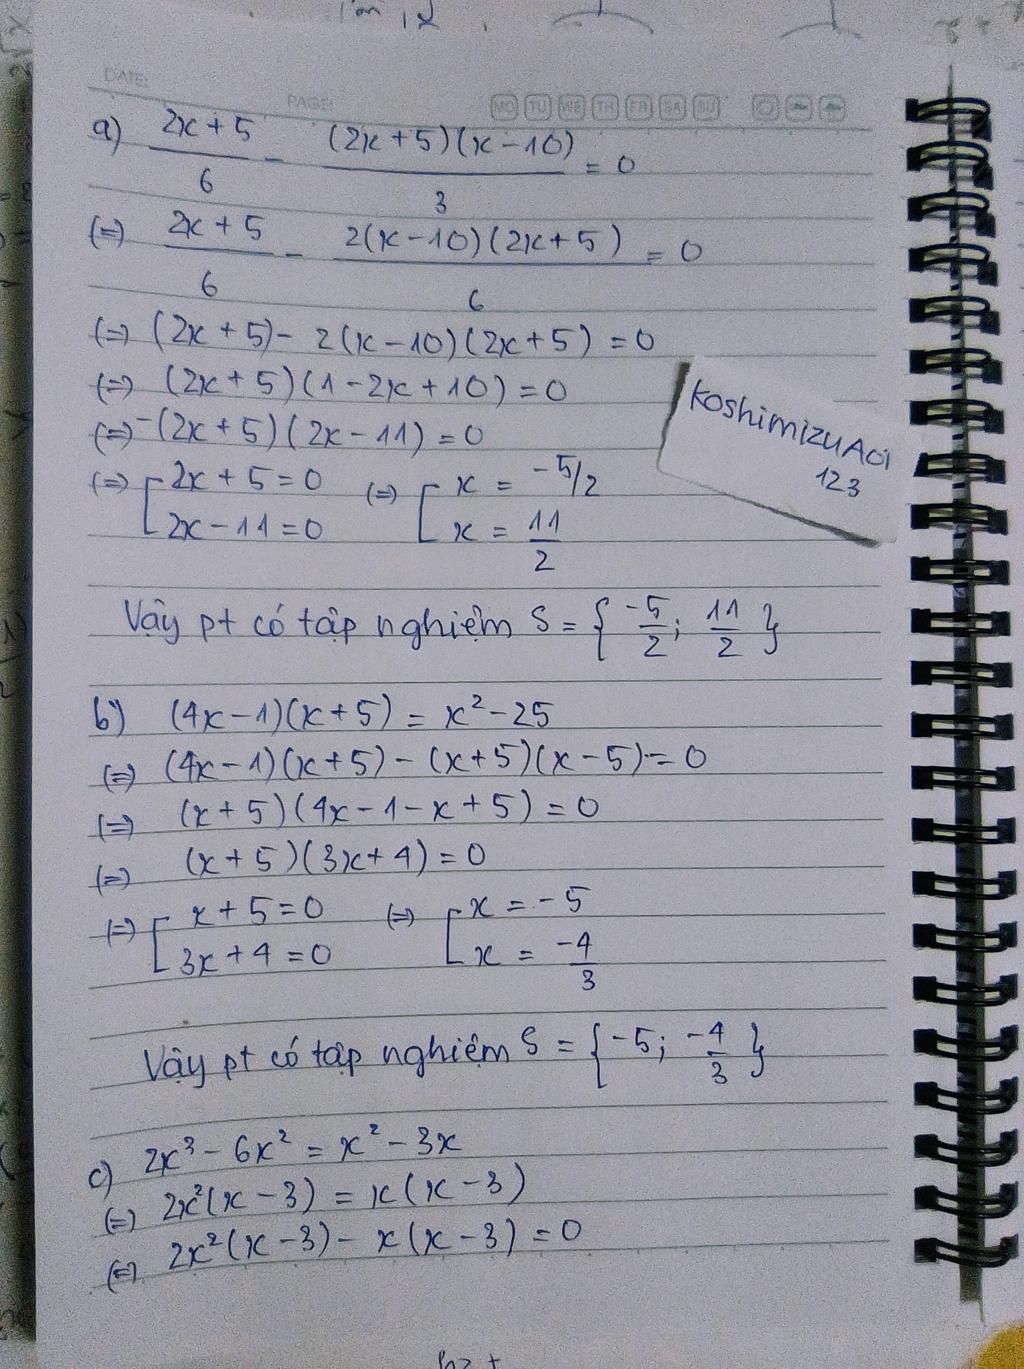 DATE:
PAGE:
MO TU WE TH FR SA SU
a) (2x+5)/6 - ((2x+5)(x-10))/3 = 0
(=) (2x+5)/6 - (2(x-10)(2x+5))/6 = 0
(=) (2x+5)- 2(x-10)(2x+5) = 0
(=) (2x+5)(1-2x+10) = 0
(=) -(2x+5)(2x-11) = 0
(=) [ 2x+5=0 (=) [ x = -5/2
2x-11=0 x = 11/2
Vậy pt có tập nghiệm S = { -5/2 ; 11/2 }
KoshimizuAoi
123
b) (4x-1)(x+5) = x²-25
(=) (4x-1)(x+5)-(x+5)(x-5)=0
(=) (x+5)(4x-1-x+5)=0
(=) (x+5)(3x+4)=0
(=) [ x+5=0 (=) [ x = -5
3x+4=0 x = -4/3
Vậy pt có tập nghiệm S = { -5; -4/3 }
c) 2x³-6x² = x²-3x
(=) 2x²(x-3) = x(x-3)
(=) 2x²(x-3)- x(x-3) = 0